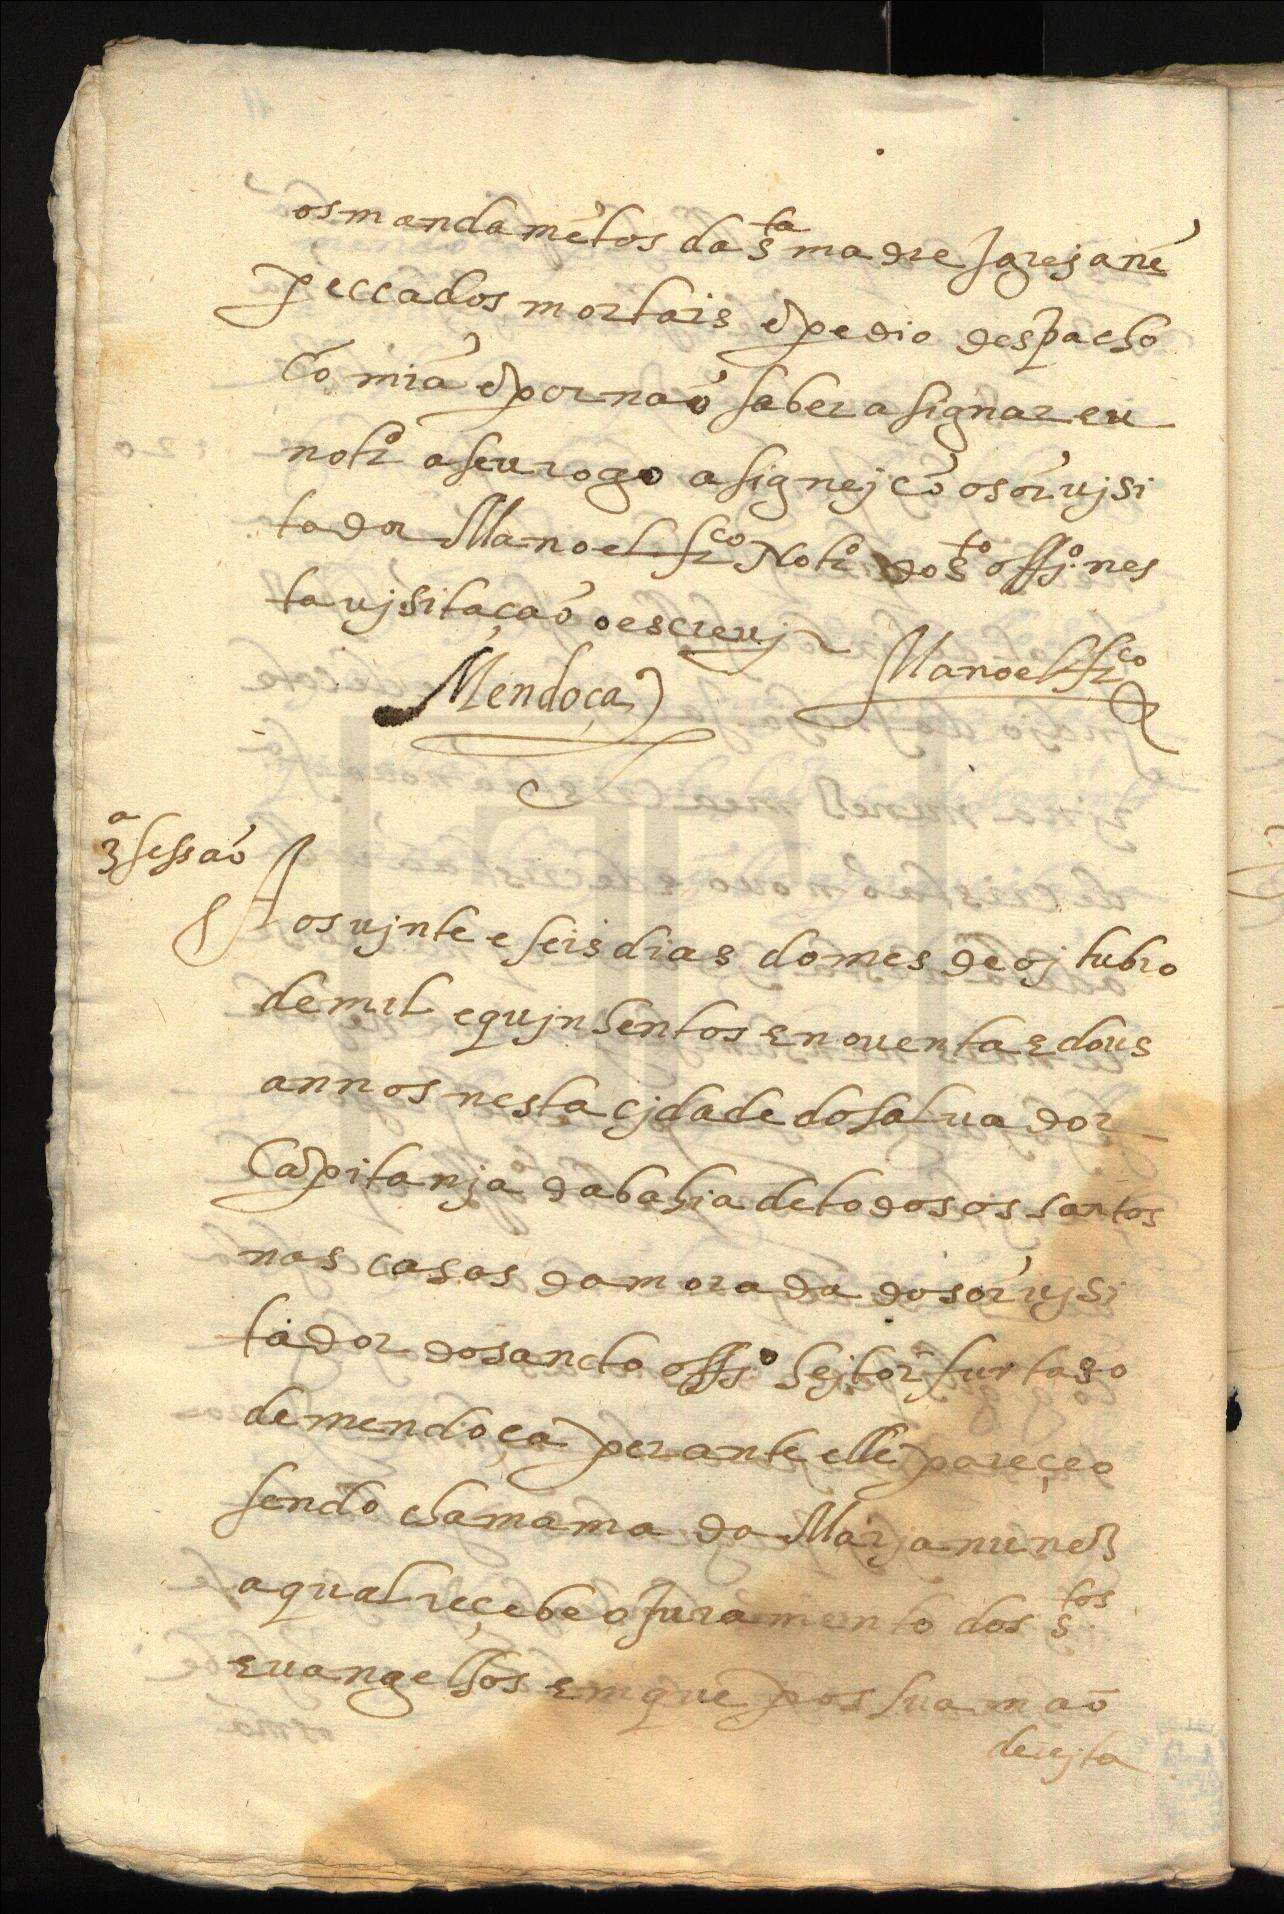 os mandamẽtos da s^ta madre Igreja nẽ
peccados mortais e pedio despacho
Cõ mĩa e por naõ saber asignar eu
not^ro a seu rogo asignej cõ o sõr vjsi
tador Manoel fr^co Not^ro do s^to offj^o nes
ta vjsitação o escrevj
Manoel fr^co
Mendoça
3^a sessaõ
Aos vjnte e seis dias do mes de ojtubro
de mil e qujnhentos e noventa e dous
annos nesta cjdade do salvador
Capitanja da bahia de todos os santos
nas casas da morada do sõr vjsi
tador do sancto offj^o hejtor furtado
de mendoça perante elle pareçeo
sendo chamama da Marja nunez
a qual reçebeo juramento dos s^tos
evangelhos em que pos sua maõ
derejta